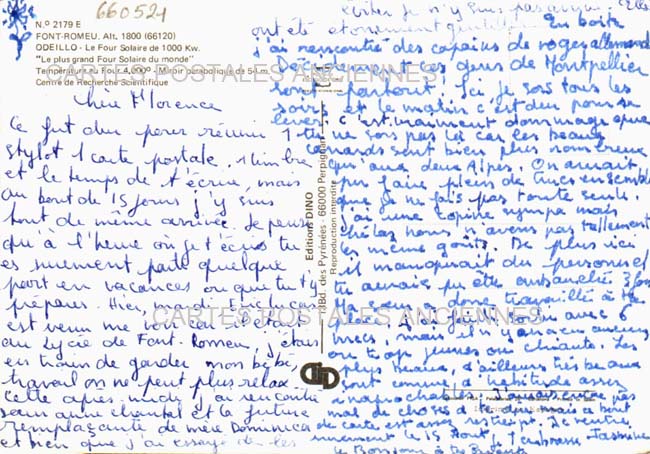 660524
N.º 2179 E
FONT-ROMEU. Alt. 1800 (66120)
ODEILLO - Le Four Solaire de 1000 Kw.
"Le plus grand Four Solaire du monde"
Température du Four 4.000º - Miroir parabolique de 54 m.
Centre de Recherche Scientifique
CARTES POSTALES ANCIENNES
Chère Florence
Ce fut dur pour réunir 1
stylot 1 carte postale, 1 timbre
et le temps de t'écrire, mais
au bout de 15 jours j'y suis
tout de même arrivée. Je pense
qu'à l'heure où je t'écris tu
es surement partie quelque
part en vacances ou que tu t'y
prépares. Hier, mardi
est venu me voir car j'étais
au lycée de Font-Romeu, j'étais
en train de garder mon bébé,
travail on ne peut plus relax.
Cette après midi j'ai rencontré
sœur anne chantal et la future
remplaçante de mère Dominica
et bien que j'ai essayé de les
éviter je n'y suis pas
ont été En boite
j'ai rencontré des copains de roger allemand
Décidemment les gens de Montpellier
sont partout. Ici je sors tous les
soirs et le matin c'est dur pour se
lever, c'est vraiment dommage que
tu ne sois pas là car les beaux
sont bien plus nombreux
qu'aux deux Alpes. On aurait
pu faire plein de trucs ensemble
que je ne fais pas toute seule.
j'ai une copine sympa mais
hélas nous n'avons pas tellement
les mêmes goûts. De plus ici
il manquait du personnel
tu aurais pu être embauchée
Ma sœur a donc travaillé à ma
place. avec 6
mecs, mais il n'y en a aucun
ou trop jeunes ou chiants. Les
plus beaux, d'ailleurs très beaux
sont comme d'habitude assez
pas
mal de choses à mais ce bout
de carte est assez restreint. Je rentre
surement le 15 Aout. Je t'embrasse. Jasmine
le Bonjour à tes Parents
Editions DINO
13Bd. des Pyrénées - 66000 Perpignan
Reproduction interdite
CARTES POSTALES ANCIENNES